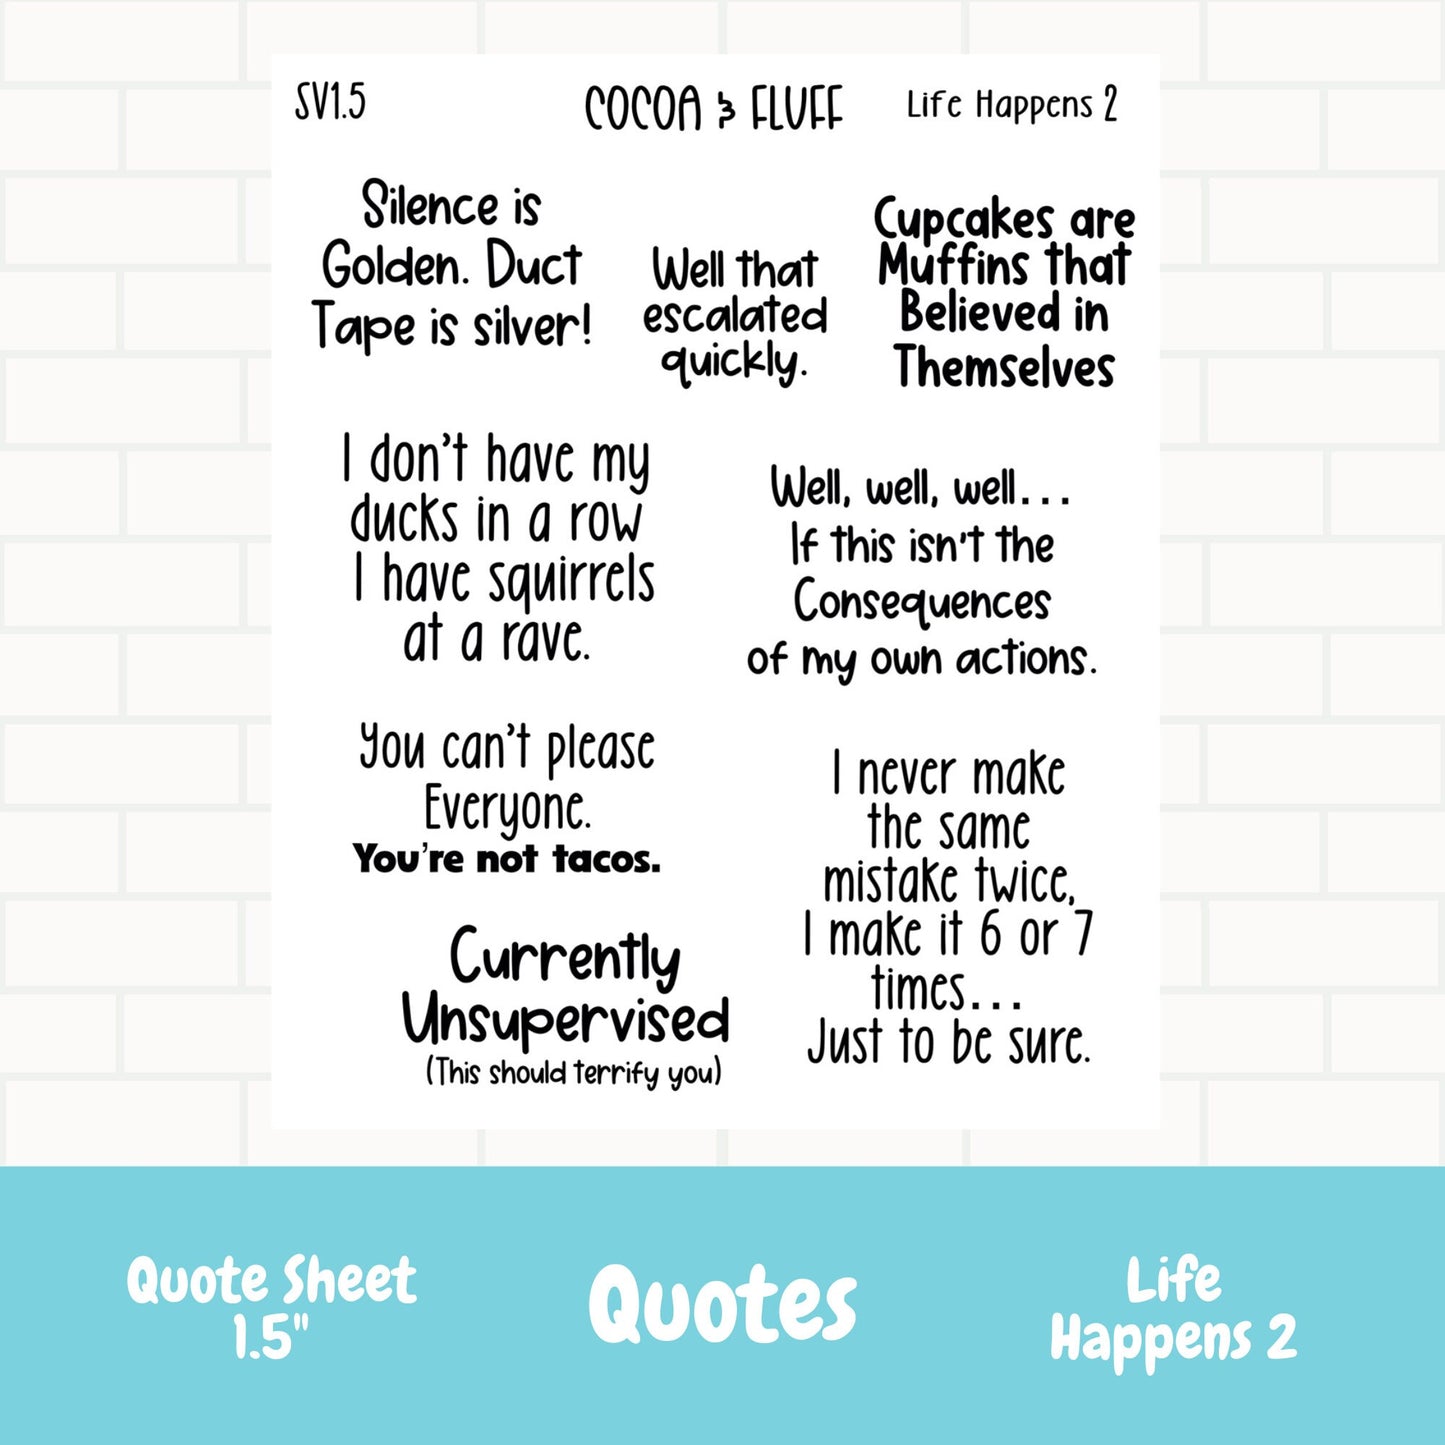 SV1.5
COCOA & FLUFF
Life Happens 2
Silence is
Golden. Duct
Tape is silver!
Well that
escalated
quickly.
Cupcakes are
Muffins that
Believed in
Themselves
I don't have my
ducks in a row
I have squirrels
at a rave.
Well, well, well...
If this isn't the
Consequences
of my own actions.
You can't please
Everyone.
You're not tacos.
I never make
the same
mistake twice,
I make it 6 or 7
times...
Just to be sure.
Currently
Unsupervised
(This should terrify you)
Quote Sheet
1.5"
Quotes
Life
Happens 2